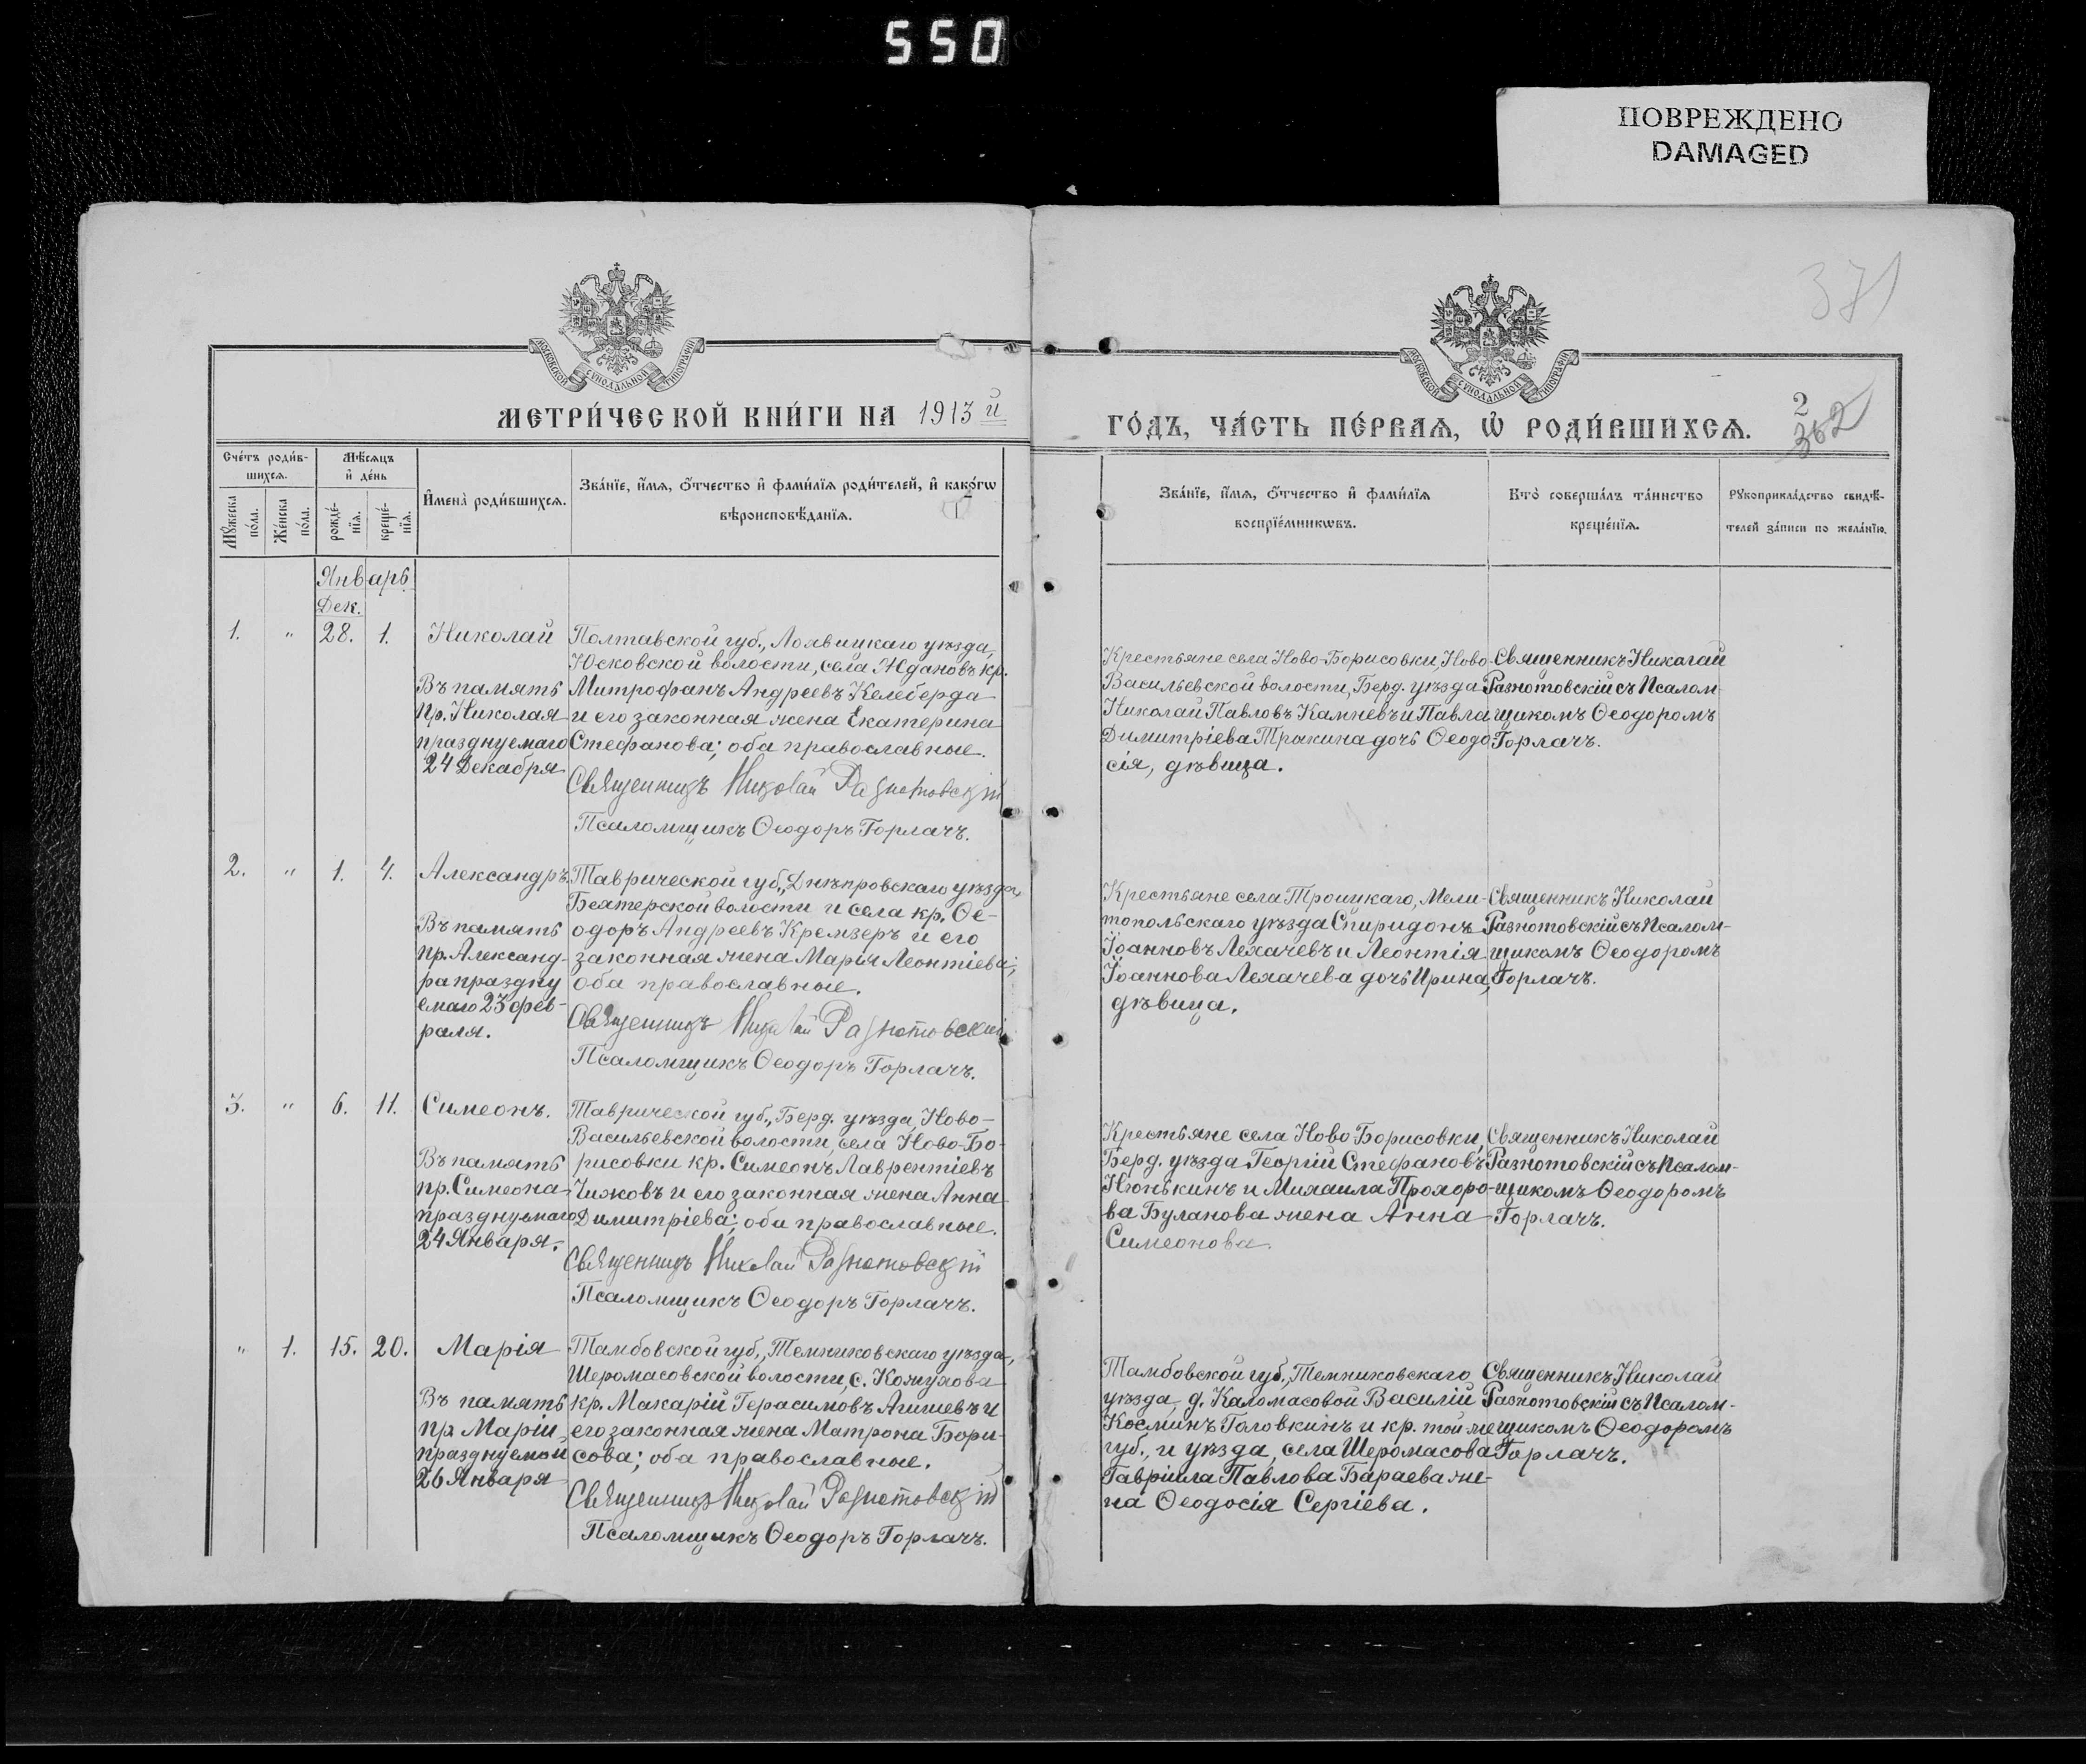 550
ПОВРЕЖДЕНО
DAMAGED
371
МОСКОВСКОЙ СѴНОДАЛЬНОЙ ТИПОГРАФІИ
МОСКОВСКОЙ СѴНОДАЛЬНОЙ ТИПОГРАФІИ
МЕТРИ́ЧЕСКОЙ КНИ́ГИ НА 1913 й
ГО́ДЪ, ЧА́СТЬ ПЕ́РВАѦ, Ѡ҆ РОДИ́ВШИХСѦ.
2
362
Сче́тъ роди́в-
шихсѧ.
Мѣ́сѧцъ
и҆ де́нь
Мꙋ́жеска
по́ла.
Же́нска
по́ла.
рожде́-
нїѧ.
креще́-
нїѧ.
И҆мена̀ роди́вшихсѧ.
Зва́нїе, и҆́мѧ, ѻ҆́тчество и҆ фами́лїѧ роди́телей, и҆ како́гѡ
вѣроисповѣ́данїѧ.
Зва́нїе, и҆́мѧ, ѻ҆́тчество и҆ фами́лїѧ
воспрїе́мникѡвъ.
Кто̀ соверша́лъ та́инство
креще́нїѧ.
Рꙋкоприкла́дство свидѣ́-
телей за́писи по жела́нїю.
Январь
Дек.
1. " 28. 1. Николай
Въ память
пр. Николая
празднуемаго
24 Декабря
Полтавской губ., Лохвицкаго уѣзда,
Юсковской волости, села Ждановъ кр.
Митрофанъ Андреевъ Келеберда
и его законная жена Екатерина
Стефанова; оба православные.
Священникъ Николай Разнотовскій
Псаломщикъ Ѳеодоръ Горлачъ.
Крестьяне села Ново-Борисовки, Ново-
Васильевской волости, Берд. уѣзда
Николай Павловъ Камневъ и Павла
Димитріева Трякина дочь Ѳеодо
сія, дѣвица.
Священникъ Николай
Разнотовскій съ Псалом-
щикомъ Ѳеодоромъ
Горлачъ.
2. " 1. 4. Александръ
Въ память
пр. Александ-
ра праздну
емаго 23 фев-
раля.
Таврической губ., Днѣпровскаго уѣзда,
Бехтерской волости и села кр. Ѳе-
одоръ Андреевъ Кремзеръ и его
законная жена Марія Леонтіева;
оба православные.
Священникъ Николай Разнотовскій
Псаломщикъ Ѳеодоръ Горлачъ.
Крестьяне села Троицкаго, Мели-
топольскаго уѣзда Спиридонъ
Іоанновъ Лехачевъ и Леонтія
Іоаннова Лехачева дочь Ирина,
дѣвица.
Священникъ Николай
Разнотовскій съ Псалом-
щикомъ Ѳеодоромъ
Горлачъ.
3. " 6. 11. Симеонъ.
Въ память
пр. Симеона
празднуемаго
24 Января.
Таврической губ., Берд. уѣзда, Ново-
Васильевской волости, села Ново-Бо-
рисовки кр. Симеонъ Лаврентіевъ
Чижовъ и его законная жена Анна
Димитріева; оба православные.
Священникъ Николай Разнотовскій
Псаломщикъ Ѳеодоръ Горлачъ.
Крестьяне села Ново Борисовки,
Берд. уѣзда Георгій Стефановъ
Нюнькинъ и Михаила Прохоро-
ва Буланова жена Анна
Симеонова.
Священникъ Николай
Разнотовскій съ Псалом-
щикомъ Ѳеодоромъ
Горлачъ.
" 1. 15. 20. Марія
Въ память
пр. Маріи
празднуемой
26 Января
Тамбовской губ., Темниковскаго уѣзда,
Шеромасовской волости, с. Кожухова
кр. Макарій Герасимовъ Агишевъ и
его законная жена Матрона Бори-
сова; оба православные.
Священникъ Николай Разнотовскій
Псаломщикъ Ѳеодоръ Горлачъ.
Тамбовской губ., Темниковскаго
уѣзда, д. Каломасовой Василій
Косминъ Головкинъ и кр. той же
губ., и уѣзда, села Шеромасова
Гавріила Павлова Бараева же-
на Ѳеодосія Сергіева.
Священникъ Николай
Разнотовскій съ Псалом-
щикомъ Ѳеодоромъ
Горлачъ.